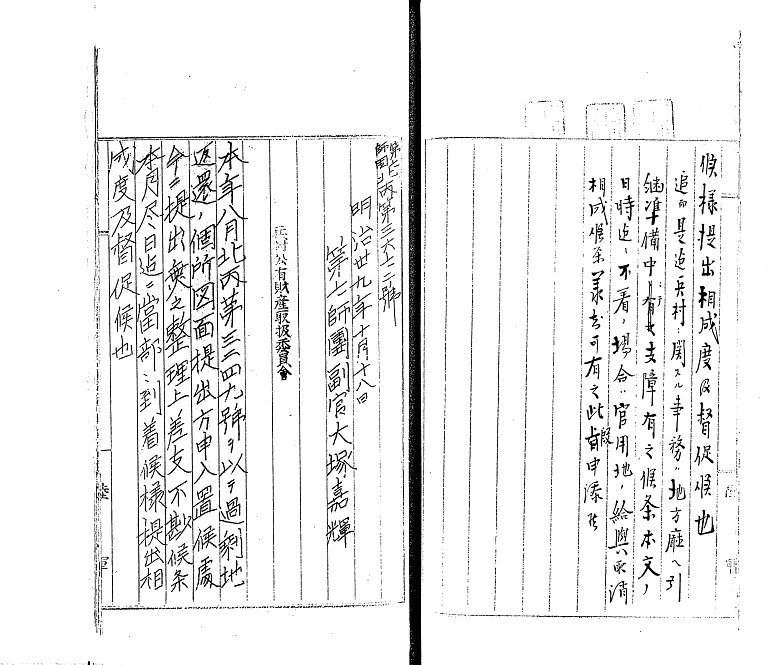 候様提出相成度及督促候也
追而是迄兵村ニ関スル事務ハ地方廳ヘ引
継準備中ノ有支障有之候条本文ノ
日時迄ニ不着ノ場合ハ官用地ノ給與取消
相成候条義ニ可有之此段申添候
第七師団
丙第三六七二號
明治卅九年十月十八日
第七師團副官大塚嘉輝
兵村公有財産取扱委員會
本年八月北丙第三三四九號ヲ以テ過剰地
返還ノ個所図面提出方申入置候處
今ニ提出無之整理上差支不尠候条
本月尽日迄ニ當部ニ到着候様提出相
成度及督促候也
陸
軍